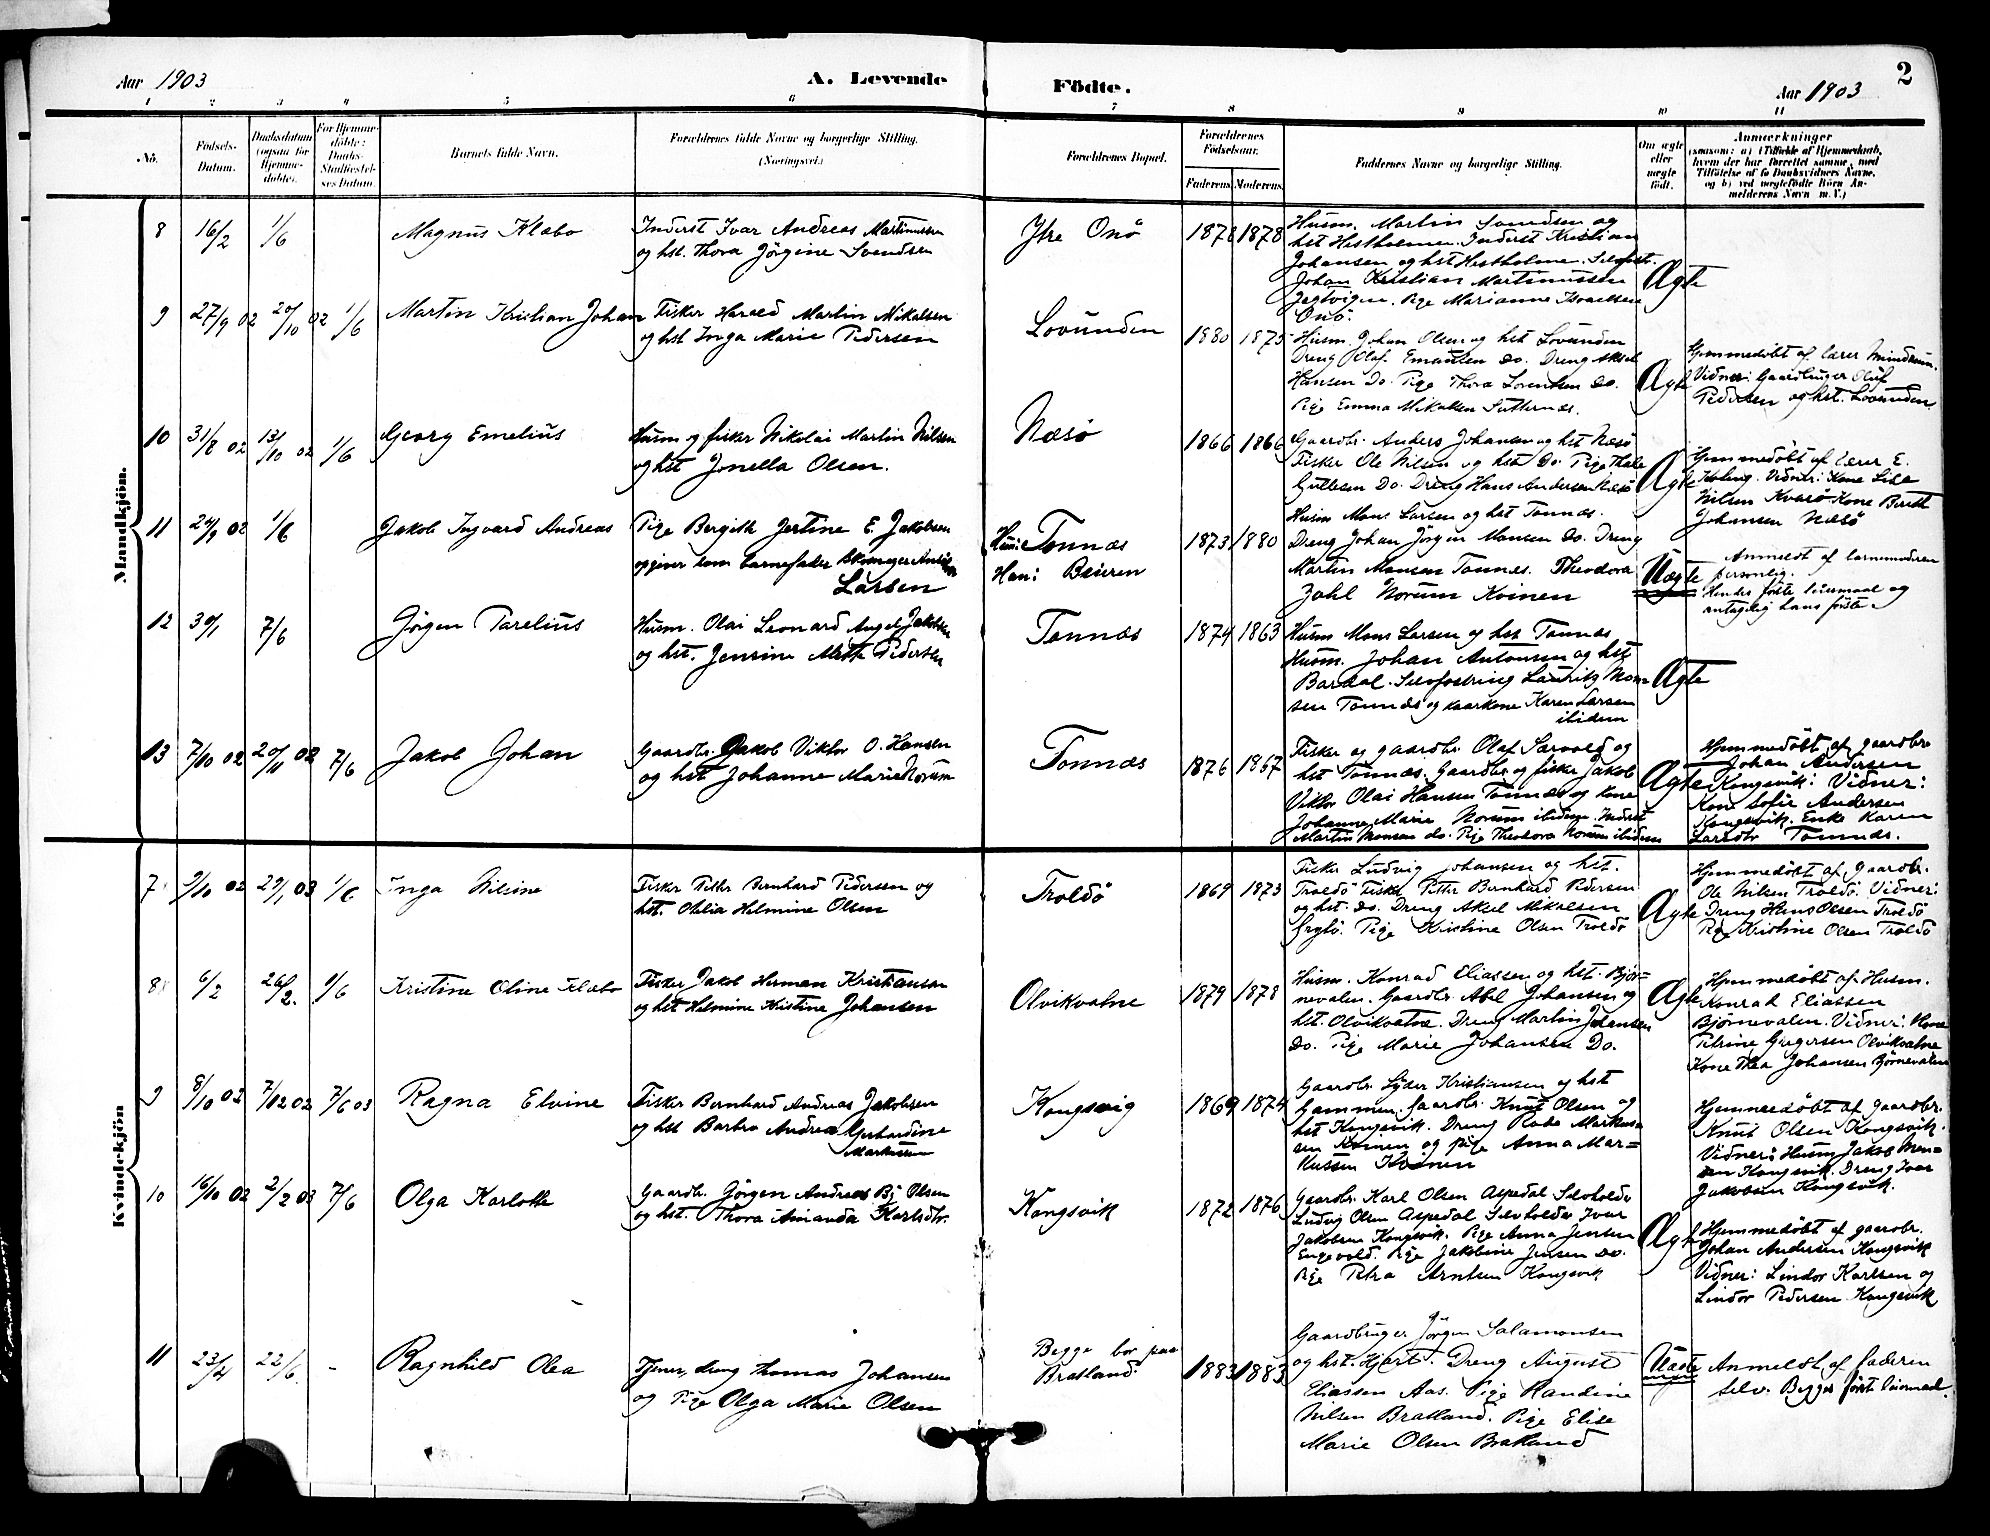 Aar 1903
A. Levende Födte.
Aar 1903
2
1 2 3 4 5 6 7 8 9 10 11
No.
Födsels-Datum.
Daabsdatum (ogsaa for Hjemmedöbte).
For Hjemmedöbte: Daabs-Stadfæstelses Datum.
Barnets fulde Navn.
Forældrenes fulde Navne og borgerlige Stilling. (Næringsvei.)
Forældrenes Bopæl.
Forældrenes Födselsaar.
Faderens. Moderens.
Faddernes Navne og borgerlige Stilling.
Om ægte eller uægte födt.
Anmærkninger
(saasom: a) i Tilfælde af Hjemmedaab, hvem der har forrettet samme, med Tilföielse af to Daabsvidners Navne, og b) ved uægtefödte Börn Anmelderens Navn m. V.)
Mandkjön.
8 16/2 1/6 Magnus Klæbo
Inderst Ivar Andreas Martinussen
og hst. Thora Jörgine Svendsen
Ytre Onö
1878 1878
Husm. Martin Svendsen og
hst Hestholmen. Inderst Kristian
Johansen og hst Hestholmen. Selvfost.
Johan Kristian Martinussen
Jegtvigen. Pige Marianne Israelsen
Onö.
Ægte
9 27/9 02 20/10 02 1/6 Martin Kristian Johan
Fisker Harald Martin Mikalsen
og hst Inga Marie Pedersen
Lovunden
1880 1875
Husm. Johan Olsen og hst Lovunden
Dreng Olaf Emausen do. Dreng Aksel
Hansen Do. Pige Thora Lorentsen do.
Pige Emma Mikalsen Sutternæs.
Ægte
Hjemmedöbt af lærer Mindrum.
Vidner: Gaardbruger Oluf
Pedersen og hst. Lovunden
10 31/8 02 13/10 02 1/6 Georg Emelius
Husm og fisker Nikolai Martin Nilsen
og hst Jonella Olsen.
Næsö
1866 1866
Gaardbr. Anders Johansen og hst Næsö
Fisker Ole Nilsen og hst Do. Pige Thale
Gullesen Do. Dreng Hans Andersen Næsö
Ægte
Hjemmedöbt af lærer E.
Vidner: Kone Lise
Nilsen Kvarö Kone Berit
Johansen Næsö
11 20/9 02 1/6 Jakob Ingvard Andreas
Pige Bergith Jertine E. Jakobsen
opgiver som barnefader
Larsen
Hun: Tonnes
Han: Beieren
1873 1880
Husm Mons Larsen og hst Tonnes.
Dreng Johan Jörgen Monsen do. Dreng
Martin Monsen Tonnes. Theodora
Zahl Norum Kvinen
Uægte
Anmeldt af barnemoderen
personlig.
Hendes förste leiermaal og
antagelig hans förste
12 30/1 7/6 Jörgen Parelius
Husm. Olai Leonard Angel Jakobsen
og hst. Jensine Mette Pedersen
Tonnes
1874 1863
Husm Mons Larsen og hst Tonnes
Husm. Johan Antonsen og hst
Bardal. Selvfostring Lauritz Mon-
sen Tonnes og kaarkone Karen Larsen
ibidem
Ægte
13 7/10 02 20/11 02 7/6 Jakob Johan
Gaardbr. Jakob Viktor O. Hansen
og hst Johanne Marie Norum
Tonnes
1876 1867
Fisker og gaardbr Olaf Sarvold og
hst Tonnes. Gaardbr og fisker Jakob
Viktor Olai Hansen Tonnes og kone
Johanne Marie Norum ibidem. Inderst
Martin Monsen do. Pige Theodora Norum ibidem
Ægte
Hjemmedöbt af gaardbr
Johan Andersen
Kongsvik: Vidner:
Kone Sofie Andersen
Kongsvik. Enke Karen
Larsdtr Tonnes.
Kvindekjön
7 9/10 02 29/1 03 1/6 Inga Nilsine
Fisker Petter Bernhard Pedersen og
hst. Otelia Helmine Olsen
Troldö
1869 1873
Fisker Ludvig Johansen og hst.
Troldö Fisker Petter Bernhard Pedersen
og hst. do. Dreng Aksel Mikalsen
Grytö. Pige Kristine Olsen Troldö
Ægte
Hjemmedöbt af gaardbr.
Ole Nilsen Troldö. Vidner:
Dreng Hans Olsen Troldö
Pige Kristine Olsen Troldö
8 6/2 26/2. 1/6 Kristine Oline Klæbo
Fisker Jakob Herman Kristiansen
og hst Helmine Kristine Johansen
Olvikvatne
1879 1878
Husm. Konrad Eliassen og hst. Björ-
nevalen. Gaardbr. Abel Johansen og
hst. Olvikvatne. Dreng Martin Johansen
Do. Pige Marie Johansen Do.
Ægte
Hjemmedöbt af Husm.
Konrad Eliassen
Björnevalen. Vidner: Kone
Petrine Gregersen Olvikvatne
Kone Thea Johansen Björnevalen
9 8/10 02 7/12 02 7/6 03 Ragna Elvine
Fisker Bernhard Andreas Jakobsen
og hst Barbro Andrea Gerhardine
Markussen
Kongsvig
1869 1874
Gaardbr Syder Kristiansen og hst
Hammen. Gaardbr. Knut Olsen og
hst Kongsvik. Dreng Markus-
sen Kvinen og pige Anna Mar=
kussen Kvinen
Hjemmedöbt af gaardbr.
Knut Olsen Kongsvik.
Vidner: Husm Jakob Men-
Kongsvik. Dreng Ivar
Jakobsen Kongsvik.
10 16/10 02 2/2 03 7/6 Olga Karlotte
Gaardbr. Jörgen Andreas Bj Olsen
og hst. Thora Amanda Karlsdtr.
Kongsvik
1872 1876
Gaardbr Karl Olsen Aspedal Selvholder
Ludvig Olsen Aspedal Selvholder Ivar
Jakobsen Kongsvik. Pige Anna Jensen
Engevold. Pige Jakobine Jensen Do.
Pige Petra Arntsen Kongsvik
Ægte
Hjemmedöbt af gaardbr.
Johan Andersen Kongsvik
Vidner: Lindor Karlsen og
Lindor Pedersen Kongsvik
11 23/4 22/6. - Ragnhild Olea
Tjener, dreng Thomas Johansen
og Pige Olga Marie Olsen
Begge bor paa
Bratland.
1883 1883
Gaardbruger Jörgen Salamonsen
og hst. Hjart. Dreng August
Eliassen Aas. Pige Randine
Nilsen Bratland. Pige Elise
Marie Olsen Bratland
Uægte
Anmeldt af faderen
selv. Begges förste leiermaal.